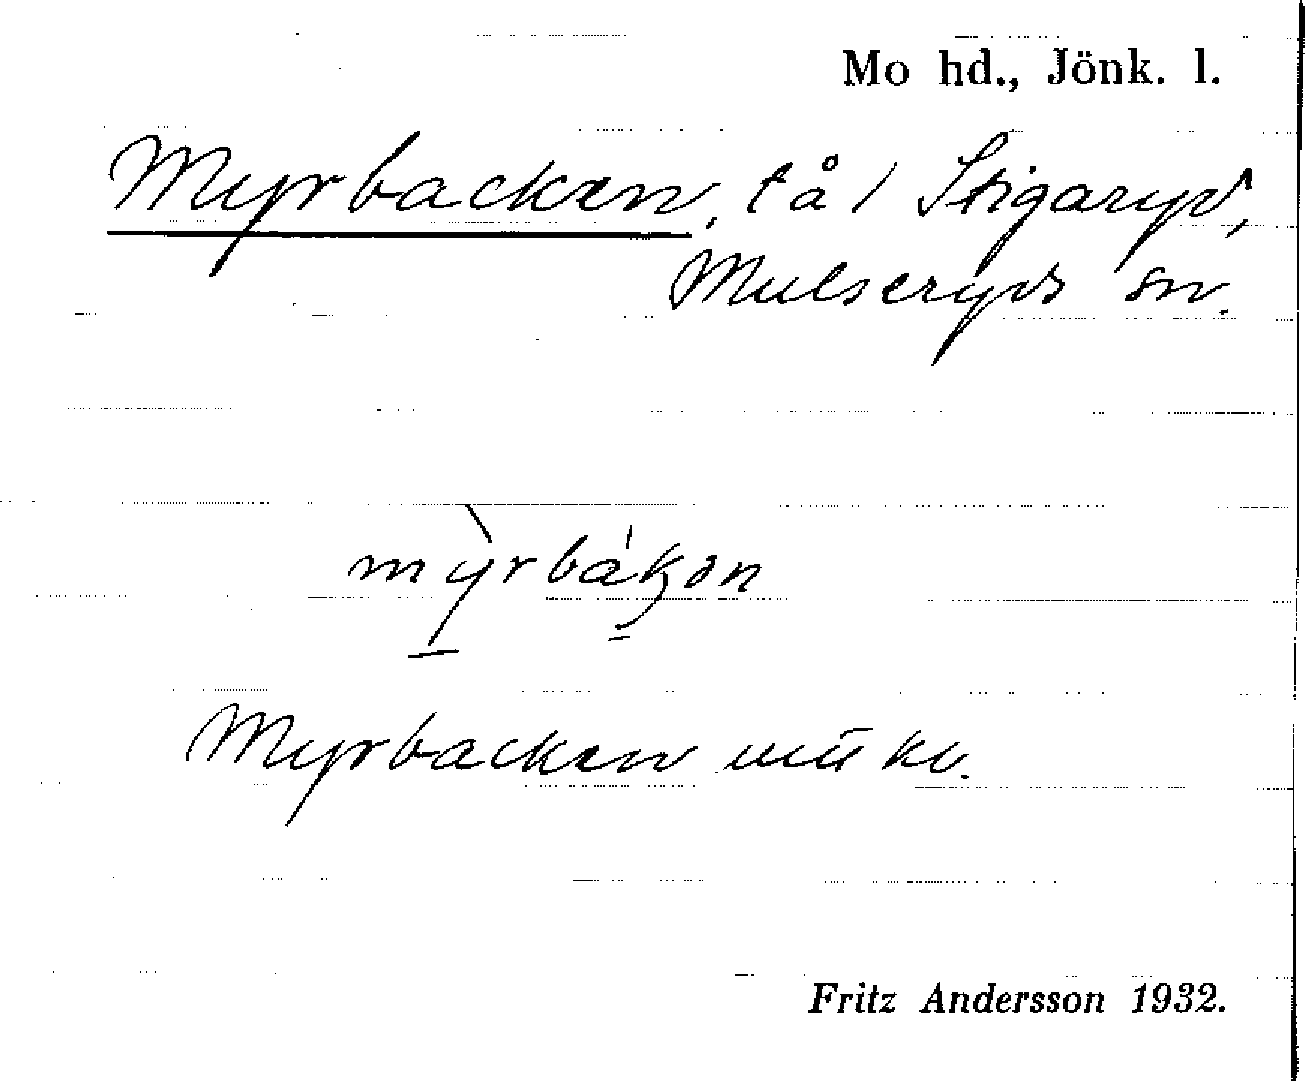 Mo hd., Jönk. l.
Myrbacken, tå / Stigaryd,
Mulseryds sn.
mỳrbákən
Myrbacken kv.
Fritz Andersson 1932.